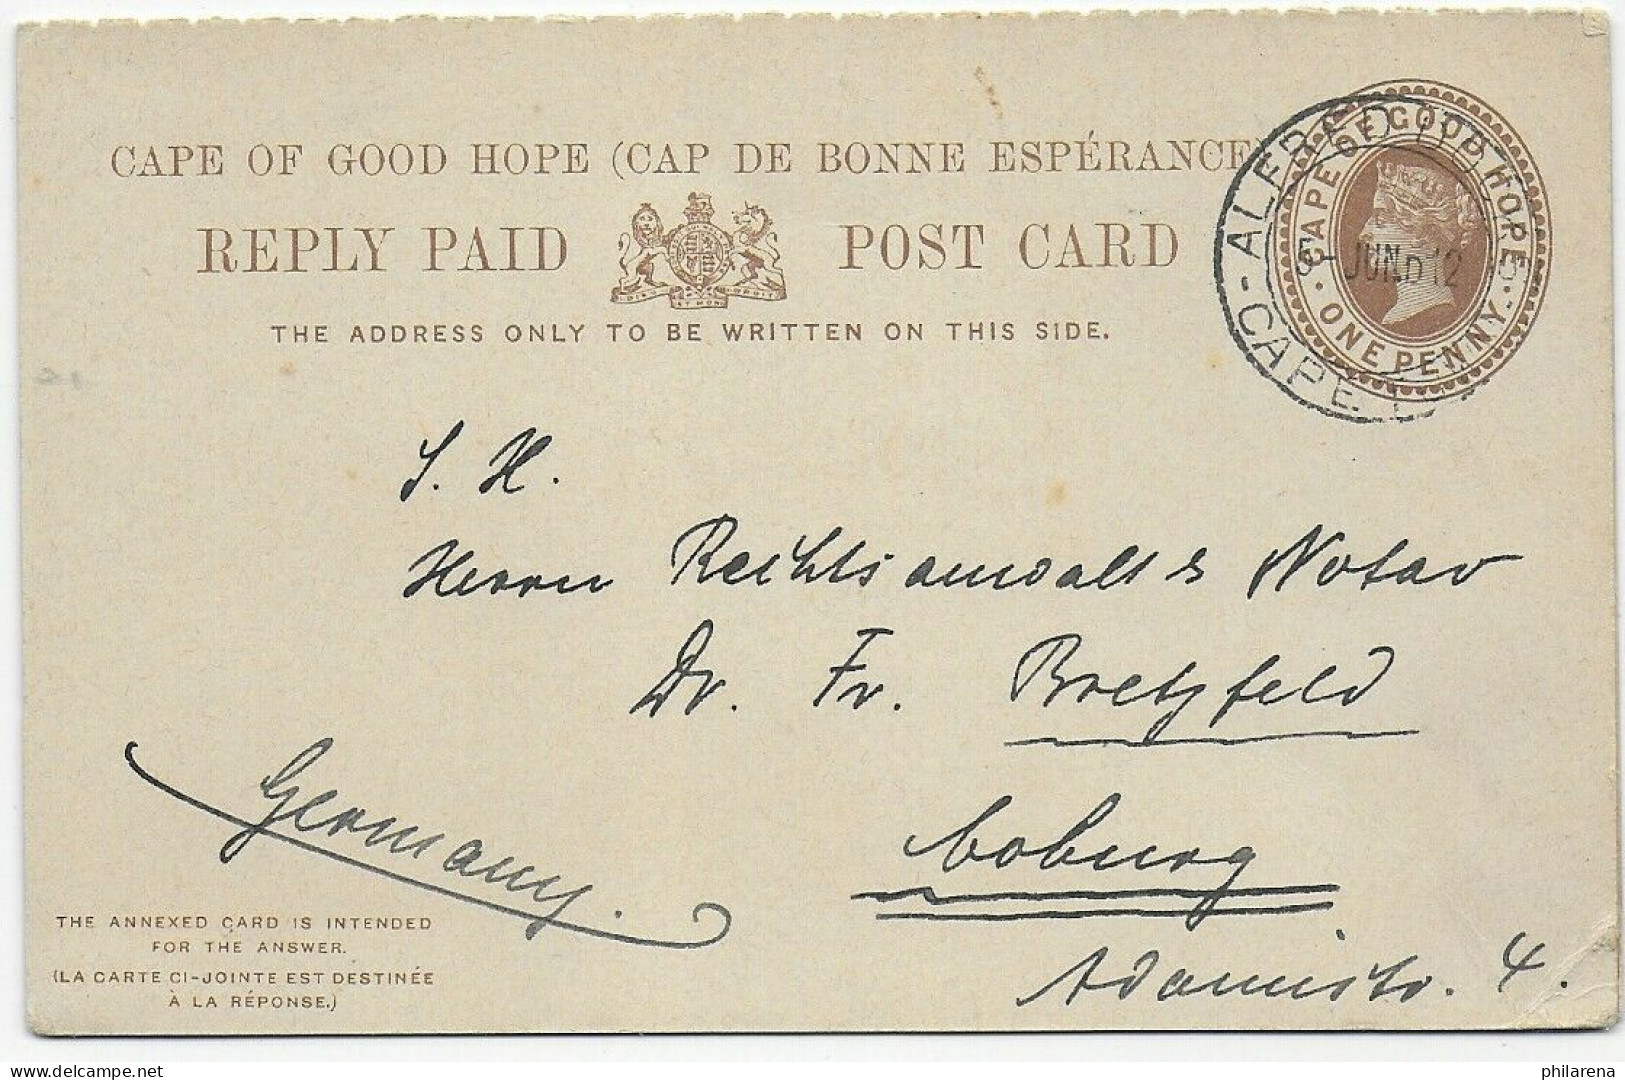 CAPE OF GOOD HOPE (CAP DE BONNE ESPÉRANCE)
REPLY PAID POST CARD
THE ADDRESS ONLY TO BE WRITTEN ON THIS SIDE.
CAPE OF GOOD HOPE
ONE PENNY
ALFRED
JUN 12
CAPE.
S. H.
Herrn Rechtsanwalt & Notar
Dr. Fr. Bretzfeld
Coburg
Adamistr. 4.
Germany.
THE ANNEXED CARD IS INTENDED
FOR THE ANSWER.
(LA CARTE CI-JOINTE EST DESTINÉE
À LA RÉPONSE.)
philarena.com